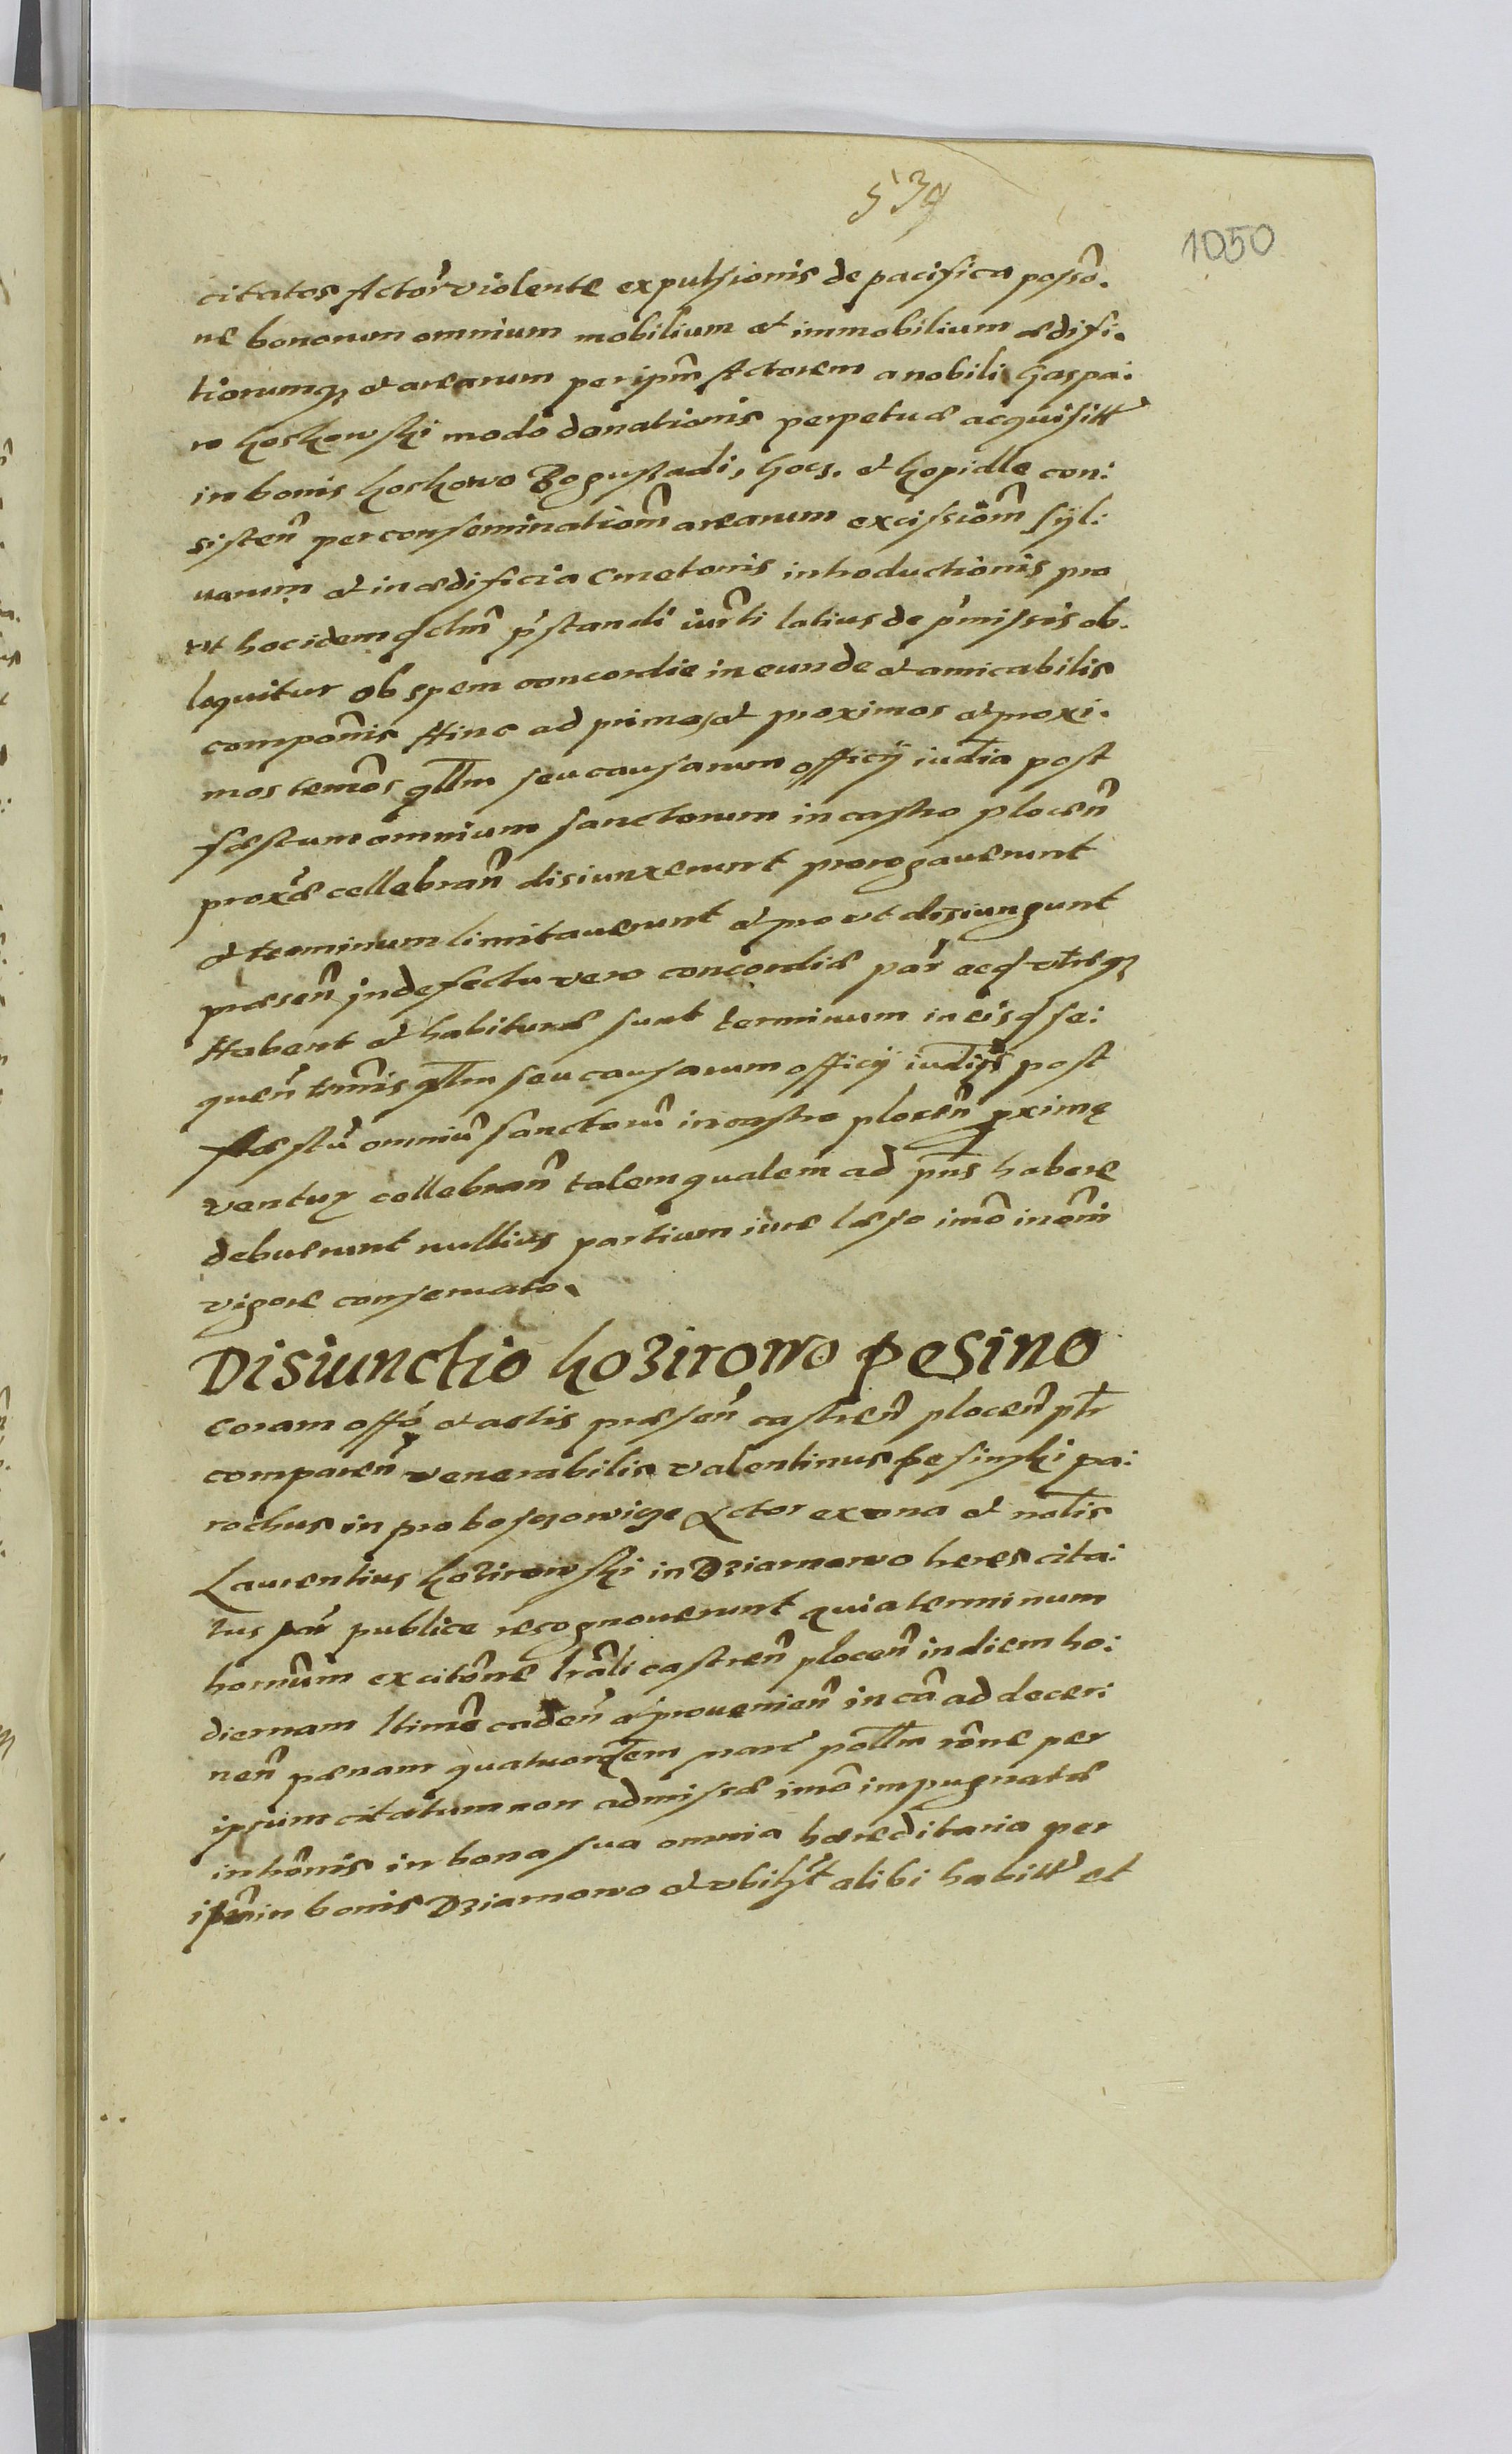 534
1050
citatos Actor̃ violente expulsionis de pacifica possõ.
ne bonorum omnium mobilium et immobilium ædifi.
tiorumq₃ et arearum per ipm̃ Actorem a nobili Gaspa:
ro koskowski modo donationis perpetuæ acquisitt
in bonis koskowo Bogustadi, hocs. et kopidle con:
sisten̄ per conseminatiom̃ arearum excissiom̃ syl:
uarum et in ædificia cmetonis introductionis pro
ut hoc idem qctm̃ p̃standi iur̃ti latius de p̃missis ob.
loquitur ob spem concordie in eunde et amicabilis
compoñis Hinc ad primos et proximos et proxi.
mos termõs qllm seu causarum officÿ iudia post
fæstum omnium sanctorum in castro plocen̄
prox̃e cellebran̄ disiunxerunt prorogauerunt
et terminum limitauerunt et pro ut disiungunt
præsen̄ in defectu vero concordiæ par̃ eæd vtræq₃
Habent et habituræ sunt terminum in eisd se:
quen̄ tm̃nis qllm seu causarum officÿ iudÿs post
fæstũ omniũ sanctorũ in castro plocen̄ proxime
ventur cellebran̄ talem qualem ad pñs habere
debuerunt nullius partium iure læso imo in om̃i
vigore conseruato.
Disiunctio kozirowo pesino
coram offõ et actis præsen̄ castren̄ plocen̄ pt̃r
comparen̄ venerabilis valentinus pesinski pa:
rochus in proboszczowicze Actor ex vna et nobis
Laurentius kozirowski in Dziarnowo heres cita:
tus par̃ publice recognouerunt quia terminum
hornũm ex citõne lrãli castren̄ plocen̄ in diem ho:
diernam ltimẽ caden̄ et prouenien̄ in cã ad decer:
nen̄ pænam quatuordem marc pollm rõne per
ipsum citatum non admissæ imõ impugnatæ
intrõmis in bona sua omnia hæreditaria per
ipm̃ in bonis Dziarnowo et vbiłt alibi habitt et